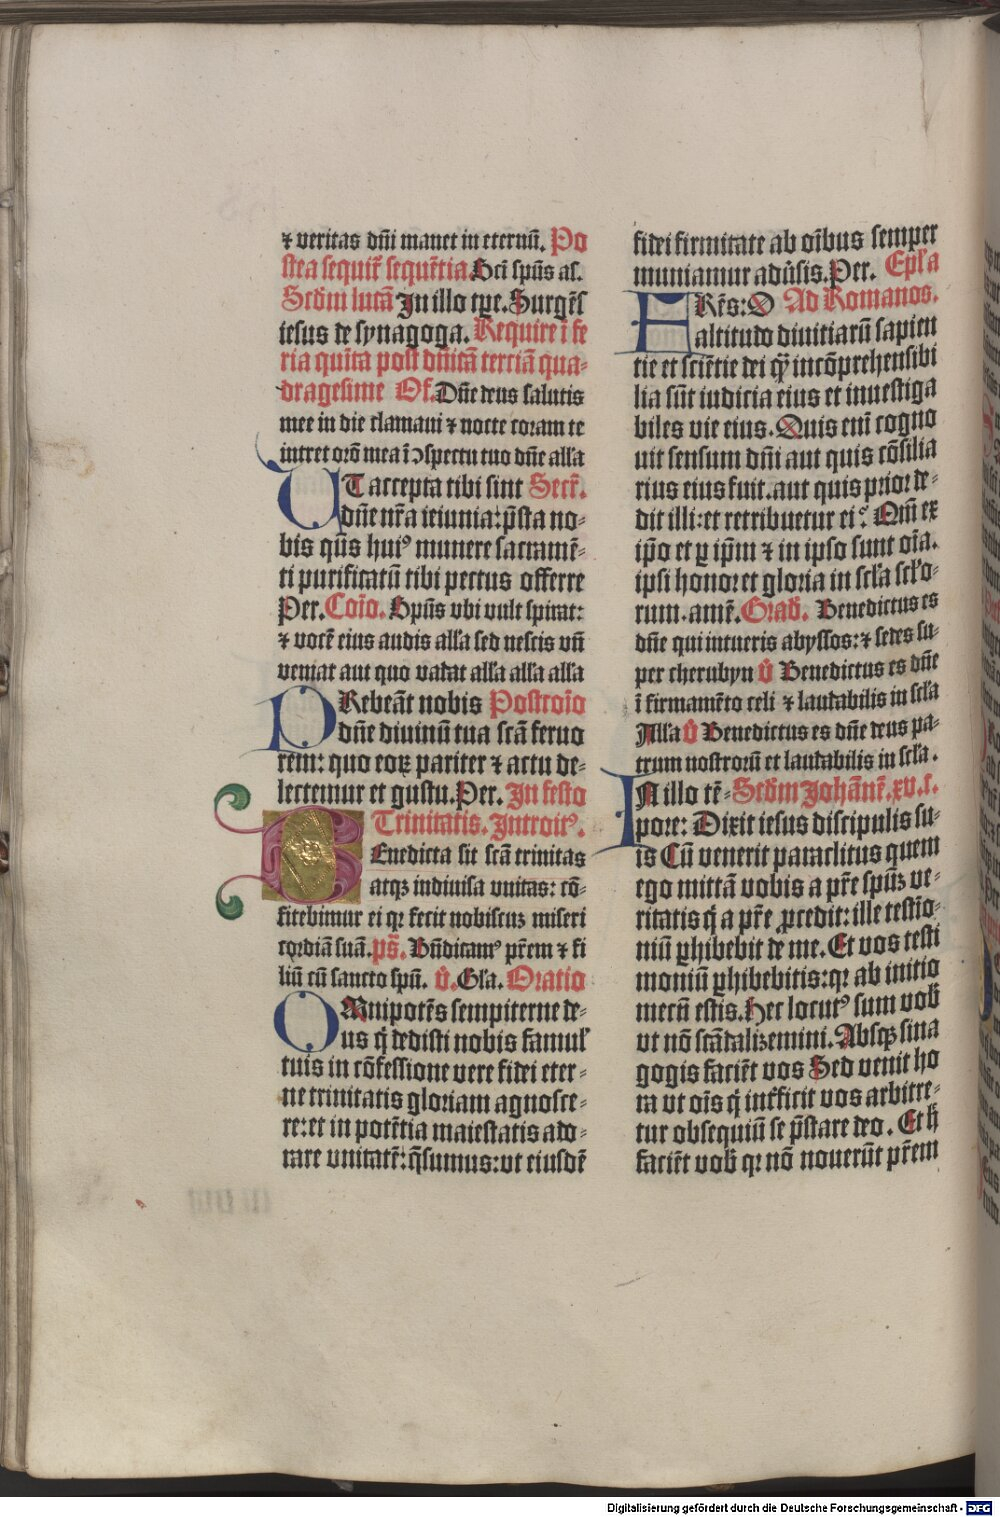 ⁊ veritas dn̄i manet in eternū. Po
stea sequit̄ sequētia Scī spūs aſ.
Scd̄m lucā In illo tꝑe. Surgēs
iesus de synagoga. Require ī fe
ria quīta post dn̄icā terciā qua-
dragesime Of. Dn̄e deus salutis
mee in die clamaui ⁊ nocte coram te
intret orō mea ī ↄspectu tuo dn̄e alla
VT accepta tibi sint Secr̄.
dn̄e nr̄a ieiunia: p̄sta no-
bis qūs huiꝰ munere sacramē-
ti purificatū tibi pectus offerre
Per. Coīo. Spūs vbi vult spirat:
⁊ vocē eius audis alla sed nescis vn̄
veniat aut quo vadat alla alla alla
PRebeāt nobis Postcoīo
dn̄e diuinū tua scā feruo
rem: quo eoꝝ pariter ⁊ actu de-
lectemur et gustu. Per. In festo
Trinitatis. Introitꝰ.
BEnedicta sit scā trinitas
atqꝫ indiuisa vnitas: cō-
fitebimur ei qꝛ fecit nobiscuꝫ miseri
cordiā suā. ps̄. Bn̄dicamꝰ pr̄em ⁊ fi
liū cū sancto spū. v̄. Gla. Oratio
OMnipotēs sempiterne de-
us q̄ dedisti nobis famul'
tuis in cōfessione vere fidei eter-
ne trinitatis gloriam agnosce-
re: et in potētia maiestatis ado-
rare vnitatē: q̄sumus: vt eiusdē
fidei firmitate ab oībus semper
muniamur adūsis. Per. Epl'a
FRēs: O Ad Romanos.
altitudo diuitiarū sapien
tie et sciētie dei qꝫ̄ incōprehensibi
lia sūt iudicia eius et inuestiga
biles vie eius. Quis enī cogno
uit sensum dn̄i aut quis cōsilia
rius eius fuit. aut quis prior de-
dit illi: et retribuetur ei? Qm̄ ex
ip̄o et ꝑ ip̄m ⁊ in ipso sunt oīa.
ipsi honor et gloria in scl'a scl'o-
rum. amē. Grad̄. Benedictus es
dn̄e qui intueris abyssos: ⁊ sedes su-
per cherubyn v̄ Benedictus es dn̄e
ī firmamēto celi ⁊ laudabilis in scl'a
Alla v̄ Benedictus es dn̄e deus pa-
trum nostrorū et laudabilis in scl'a.
IN illo tē- Scd̄m Johānē. xv. c.
pore: Dixit iesus discipulis su-
is Cū venerit paraclitus quem
ego mittā vobis a pr̄e spūꝫ ve-
ritatis q̄ a pr̄e ꝓcedit: ille testīo-
niū ꝑhibebit de me. Et vos testi
moniū ꝑhibebitis: qꝛ ab initio
mecū estis. Hec locutꝰ sum vob̄
vt nō scādalizemini. Absqꝫ sina
gogis faciēt vos Sed venit ho
ra vt oīs q̄ int̄ficit vos arbitre-
tur obsequiū se p̄stare deo. Et h̄
faciēt vob̄ qꝛ nō nouerūt pr̄em
Digitalisierung gefördert durch die Deutsche Forschungsgemeinschaft - DFG